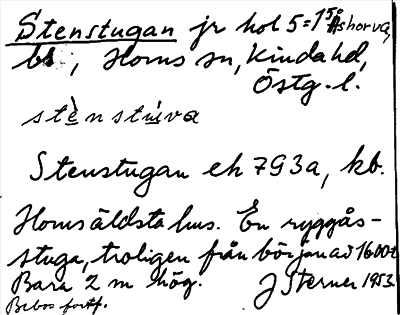 Stenstugan jr hol 5=15 Åshorva,
bs, Horns sn, Kinda hd,
Östg. l.
stènstùva
Stenstugan ek 7G3a, kb.
Horns äldsta hus. En ryggås-
stuga, troligen från början av 1600-t
Bara 2 m hög. J Sterner 1953.
Bebos fortf.